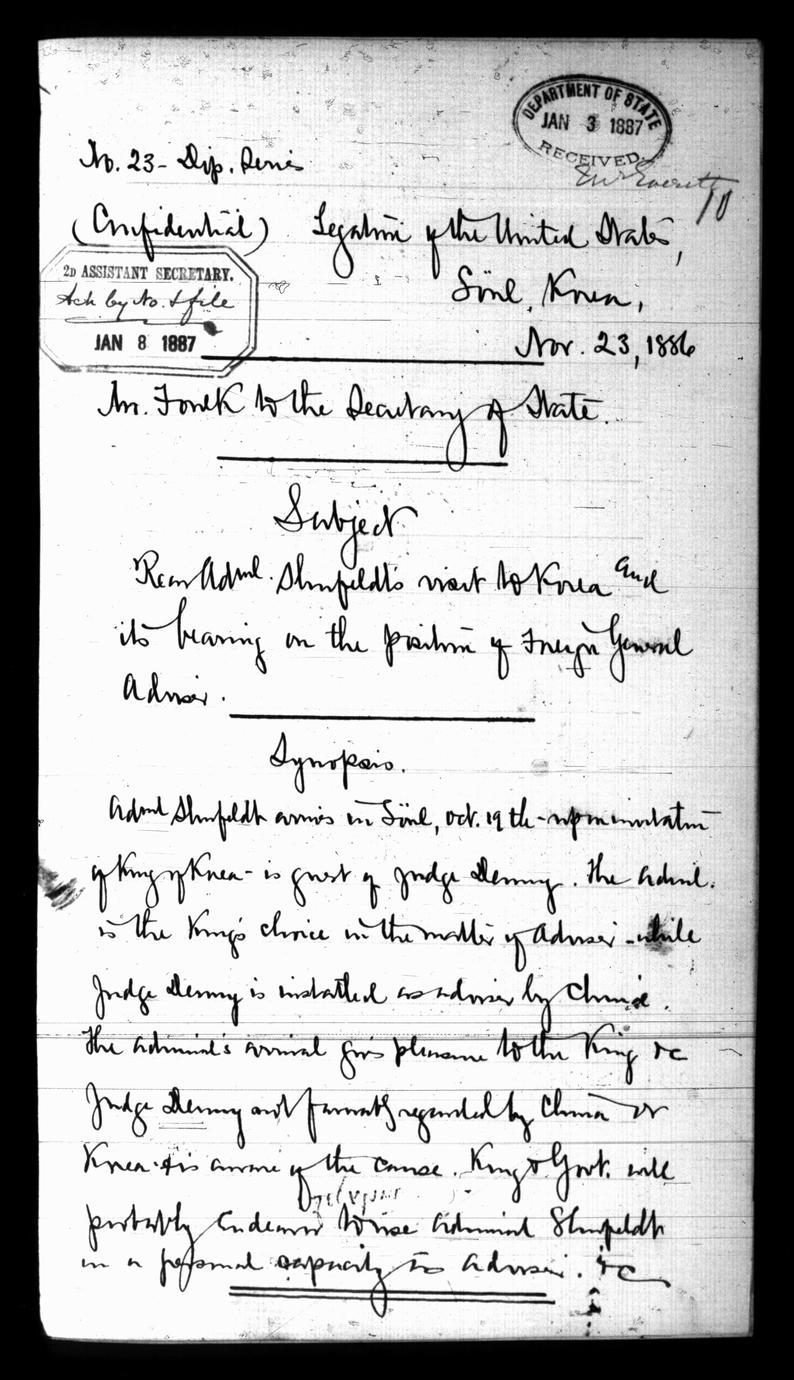 DEPARTMENT OF STATE
JAN 3 1887
RECEIVED.
Mr Everett
No. 23 - Dip. Series
(Confidential) Legation of the United States,
2D ASSISTANT SECRETARY.
Ack by No. & file
JAN 8 1887
Söul, Korea,
Nov. 23, 1886
Mr. Foulk to the Secretary of State.
Subject
Rear Adml. Shufeldt's visit to Korea and
its bearing on the position of Foreign General
Adviser.
Synopsis.
Adml Shufeldt arrives in Söul, Oct. 19th - upon invitation
of King of Korea - is guest of Judge Denny. The Adml.
is the King's choice in the matter of Adviser - while
Judge Denny is installed as adviser by China.
The Admiral's arrival gives pleasure to the King &c
Judge Denny not favorably regarded by China or
Korea & is aware of the cause. King & Govt. will
probably endeavor to use Admiral Shufeldt
in a personal capacity as Adviser. &c